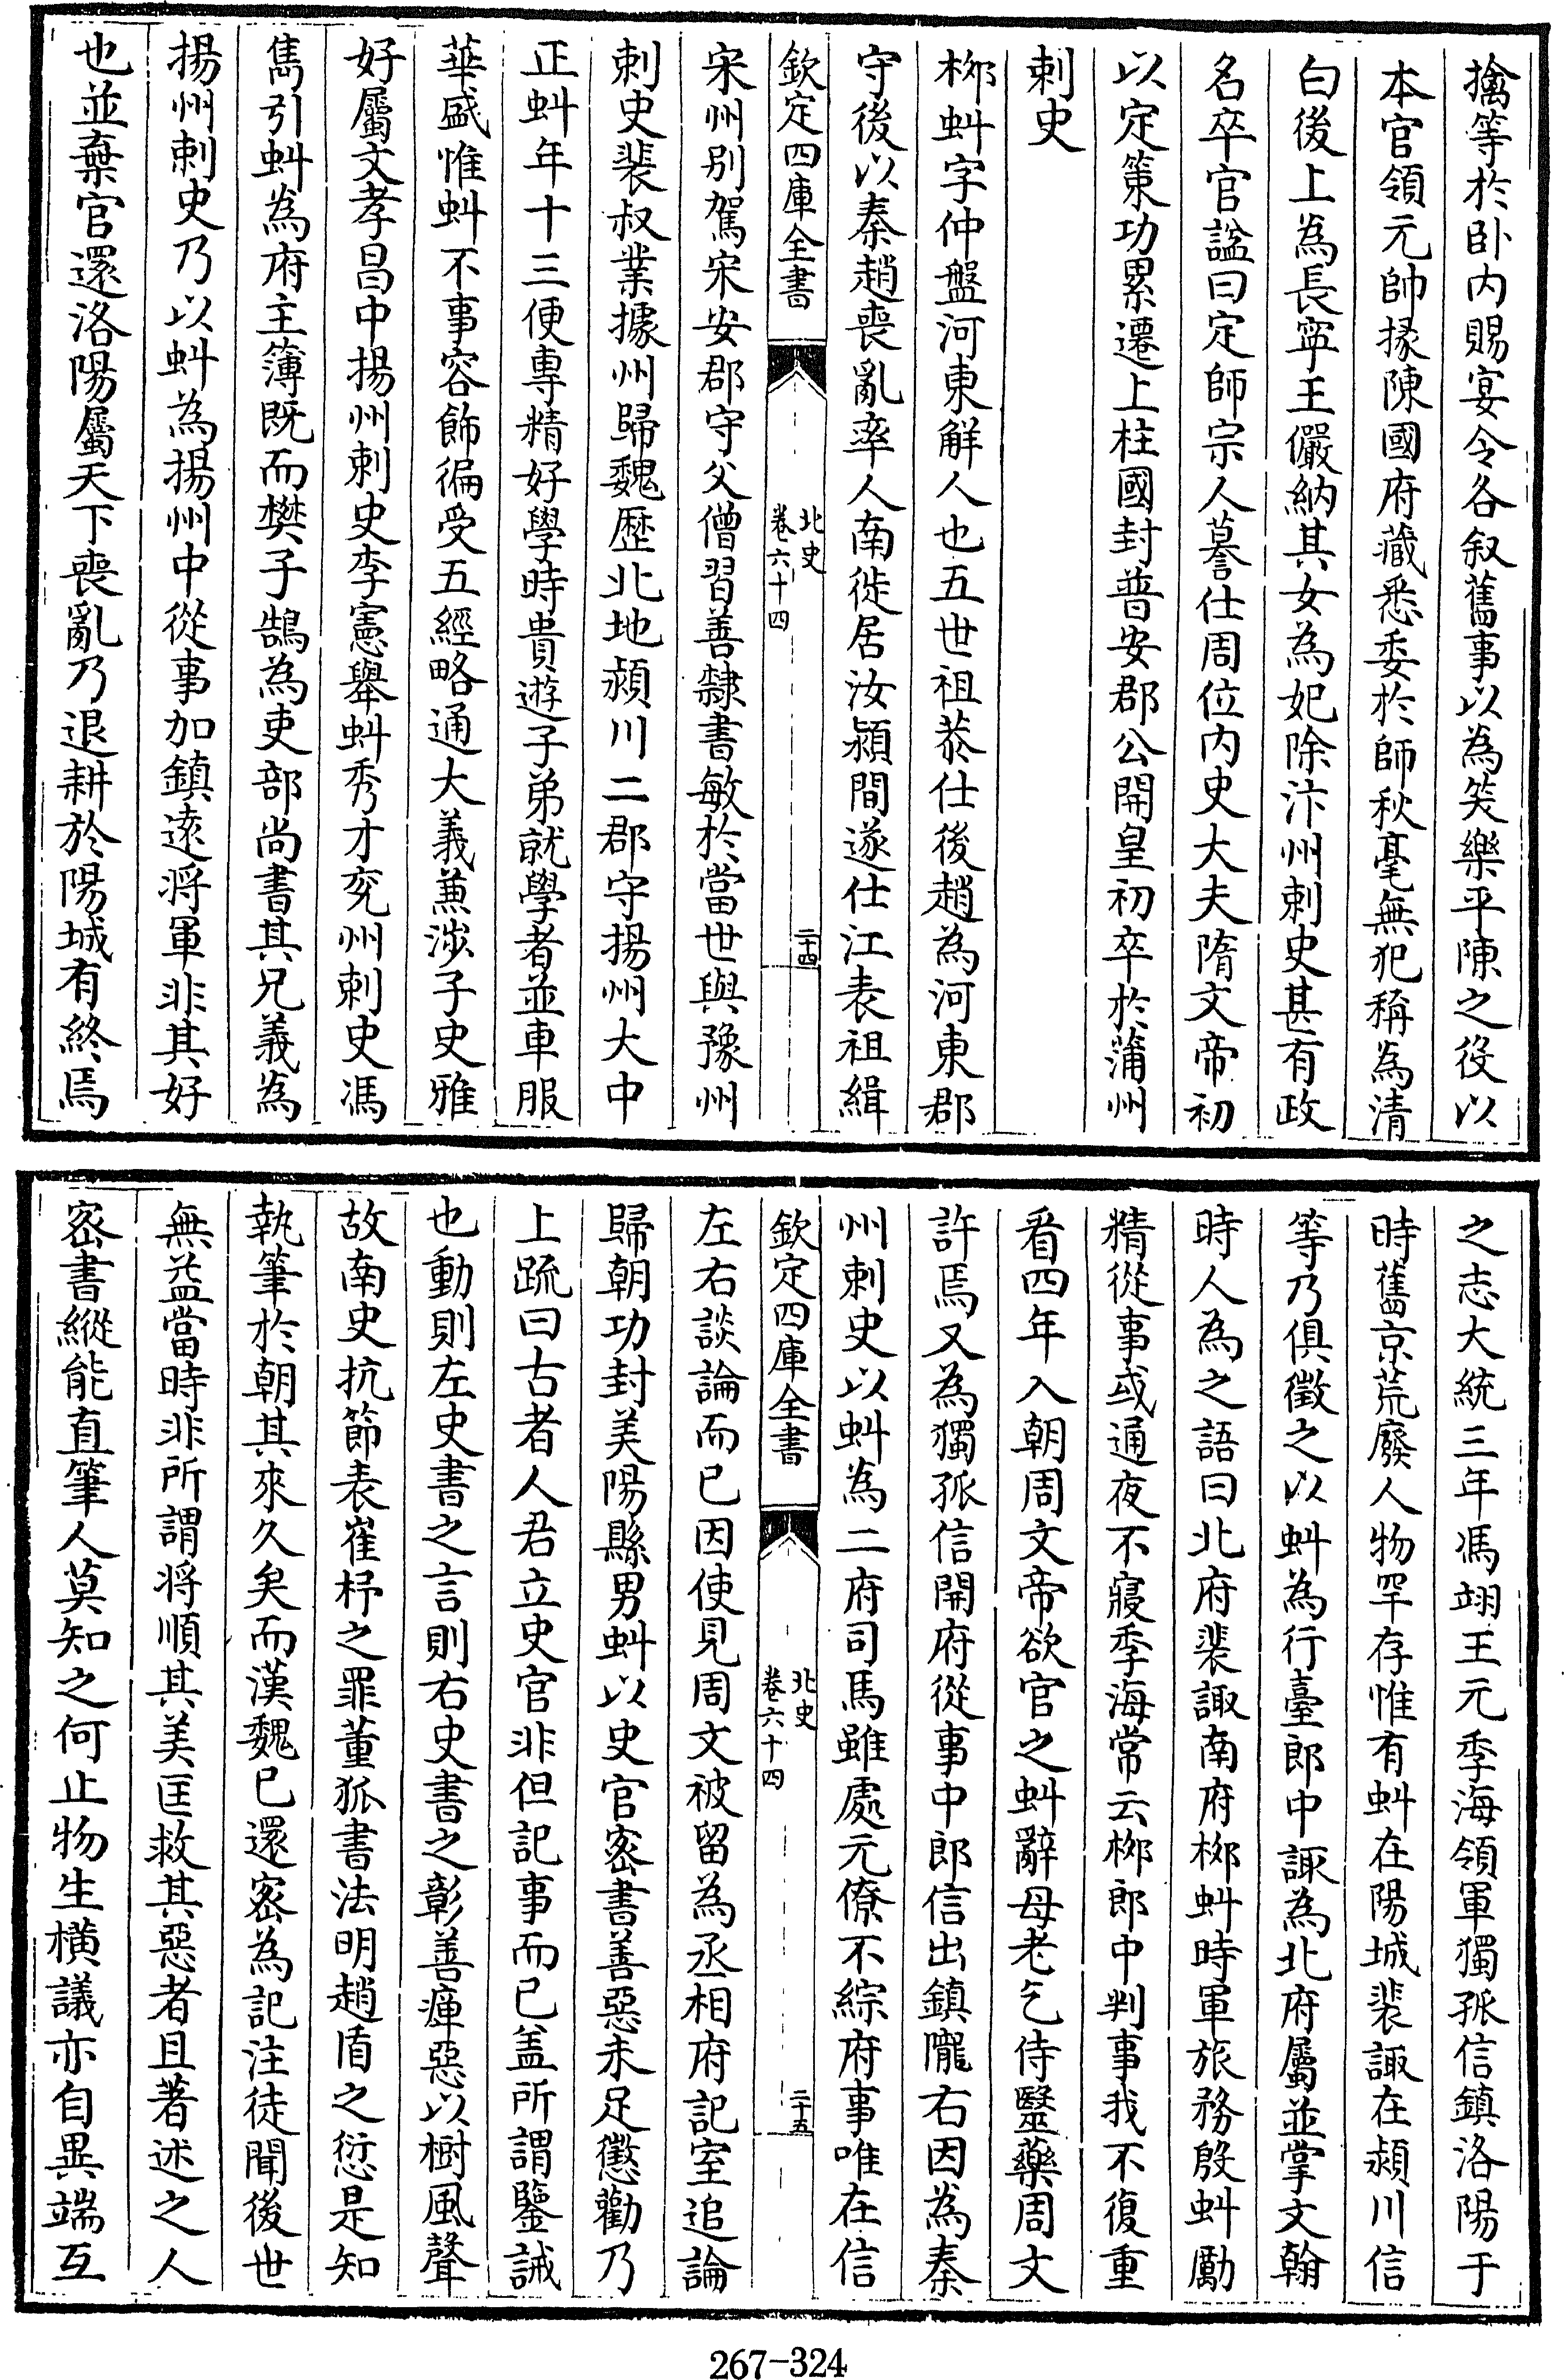 擒等於卧内賜宴令各叙舊事以為笑樂平陳之役以
本官領元帥掾陳國府藏悉委於師秋毫無犯稱為清
白後上為長寧王儼納其女為妃除汴州刺史甚有政
名卒官諡曰定師宗人謩仕周位内史大夫隋文帝初
以定策功累遷上柱國封普安郡公開皇初卒於蒲州
刺史
桞虯字仲盤河東解人也五世祖恭仕後趙為河東郡
守後以秦趙喪亂率人南徙居汝潁間遂仕江表祖緝
欽定四庫全書
北史
卷六十四
二十四
宋州别駕宋安郡守父僧習善隸書敏於當世與豫州
刺史裴叔業據州歸魏歴北地潁川二郡守揚州大中
正虯年十三便專精好學時貴遊子弟就學者並車服
華盛惟虯不事容飾徧受五經略通大義兼涉子史雅
好屬文孝昌中揚州刺史李憲舉虯秀才兖州刺史馮
雋引虯為府主簿既而樊子鵠為吏部尚書其兄義為
揚州刺史乃以虯為揚州中從事加鎮逺將軍非其好
也並棄官還洛陽屬天下喪亂乃退耕於陽城有終焉
之志大統三年馮翊王元季海領軍獨孤信鎮洛陽于
時舊京荒廢人物罕存惟有虯在陽城裴諏在潁川信
等乃俱徵之以虯為行臺郎中諏為北府屬並掌文翰
時人為之語曰北府裴諏南府桞虯時軍旅務殷虯勵
精從事或通夜不寢季海常云桞郎中判事我不復重
看四年入朝周文帝欲官之虯辭母老乞侍毉藥周文
許焉又為獨孤信開府從事中郎信出鎮隴右因為秦
州刺史以虯為二府司馬雖處元僚不綜府事唯在信
欽定四庫全書
北史
卷六十四
二十五
左右談論而已因使見周文被留為丞相府記室追論
歸朝功封美陽縣男虯以史官宻書善惡未足懲勸乃
上疏曰古者人君立史官非但記事而已盖所謂鑒誡
也動則左史書之言則右史書之彰善癉惡以樹風聲
故南史抗節表崔杼之罪董狐書法明趙盾之愆是知
執筆於朝其來久矣而漢魏已還宻為記注徒聞後世
無益當時非所謂將順其美匡救其惡者且著述之人
宻書縱能直筆人莫知之何止物生横議亦自異端互
267-324